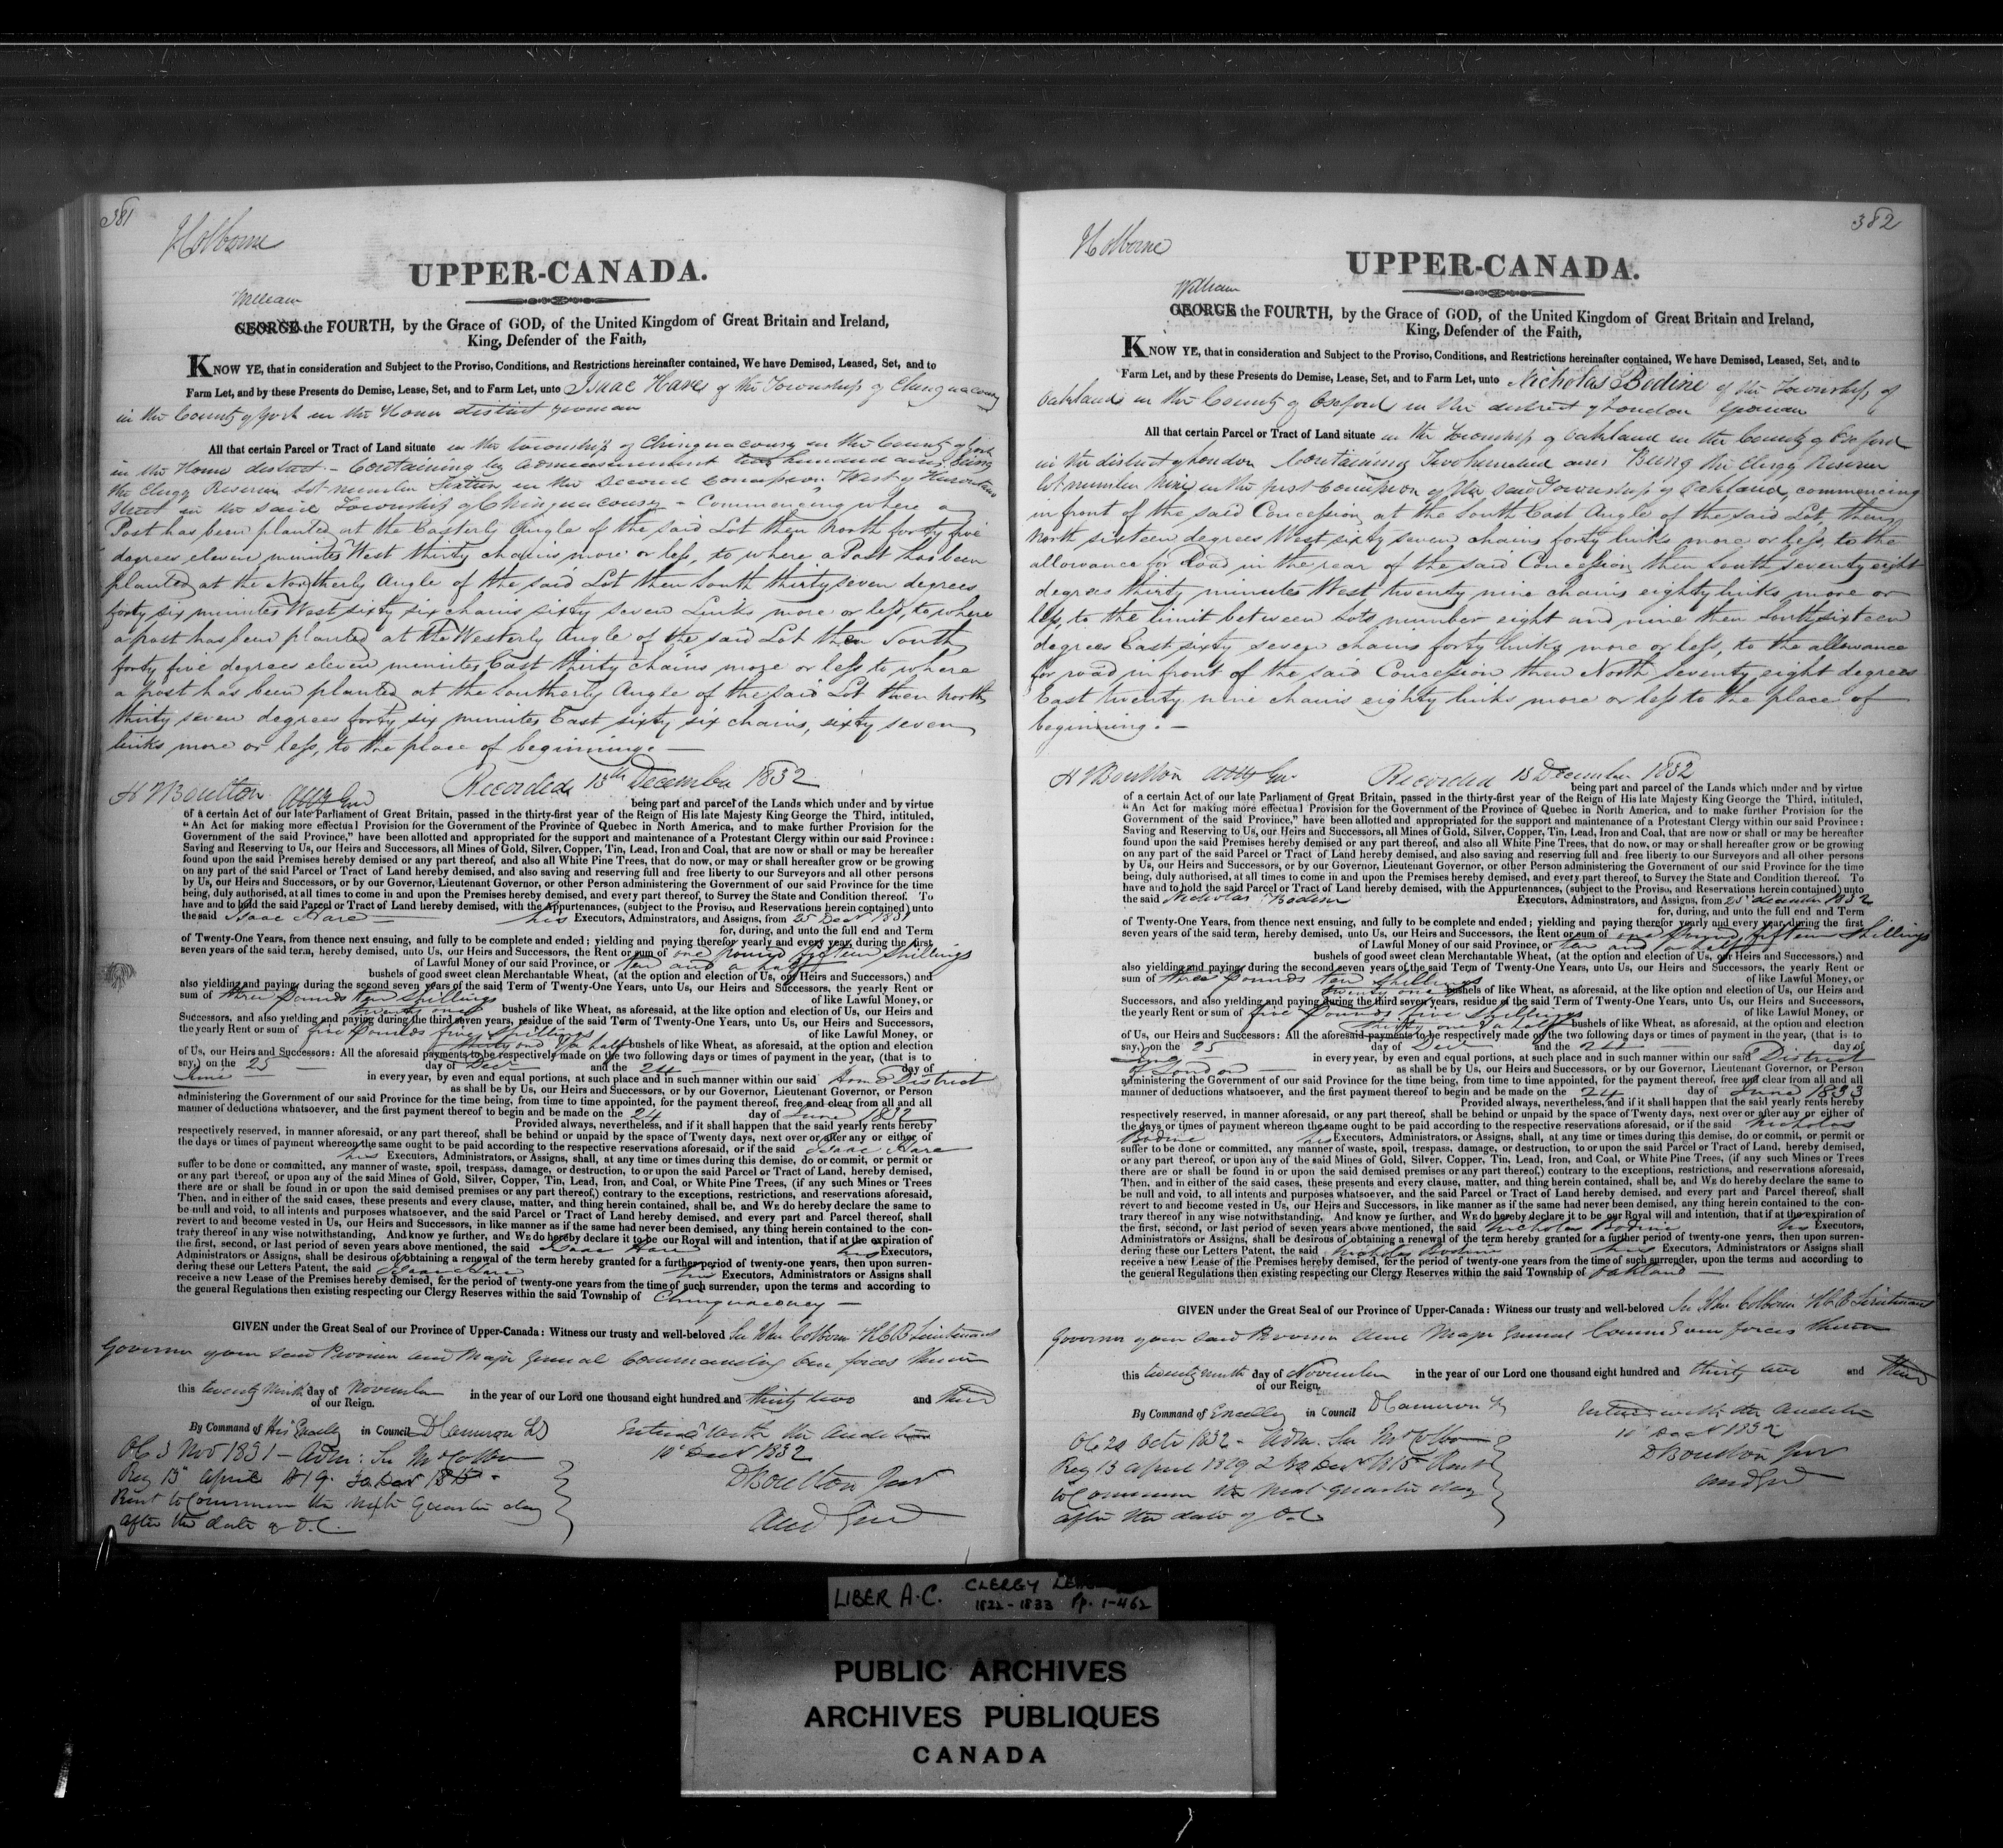 381
Holborne
UPPER-CANADA.
William
GEORGE the FOURTH, by the Grace of GOD, of the United Kingdom of Great Britain and Ireland,
King, Defender of the Faith,
KNOW YE, that in consideration and Subject to the Proviso, Conditions, and Restrictions hereinafter contained, We have Demised, Leased, Set, and to
Farm Let, and by these Presents do Demise, Lease, Set, and to Farm Let, unto Isaac Hare of the Township of Chinguacousy
in the County of York in the Home district yeoman
All that certain Parcel or Tract of Land situate in the township of Chinguacousy in the County of York
in the Home district - Containing by admeasurement two hundred acres being
the Clergy Reserve Lot number Sixteen in the Second Concession West of Hurontario
Street in the said Township of Chinguacousy - Commencing where a
Post has been planted at the Easterly Angle of the said Lot then North forty five
degrees eleven minutes West thirty chains more or less, to where a Post has been
planted at the Northerly Angle of the said Lot then South thirty seven degrees
forty six minutes West sixty six chains sixty seven Links more or less, to where
a post has been planted at the Westerly Angle of the said Lot then South
forty five degrees eleven minutes East thirty chains more or less to where
a post has been planted at the Southerly Angle of the said Lot then North
thirty seven degrees forty six minutes East sixty six chains, sixty seven
links more or less, to the place of beginning. —
H J Boulton Atty Gen Recorded 15th December 1832
being part and parcel of the Lands which under and by virtue
of a certain Act of our late Parliament of Great Britain, passed in the thirty-first year of the Reign of His late Majesty King George the Third, intituled,
"An Act for making more effectual Provision for the Government of the Province of Quebec in North America, and to make further Provision for the
Government of the said Province," have been allotted and appropriated for the support and maintenance of a Protestant Clergy within our said Province:
Saving and Reserving to Us, our Heirs and Successors, all Mines of Gold, Silver, Copper, Tin, Lead, Iron and Coal, that are now or shall or may be hereafter
found upon the said Premises hereby demised or any part thereof, and also all White Pine Trees, that do now, or may or shall hereafter grow or be growing
on any part of the said Parcel or Tract of Land hereby demised, and also saving and reserving full and free liberty to our Surveyors and all other persons
by Us, our Heirs and Successors, or by our Governor, Lieutenant Governor, or other Person administering the Government of our said Province for the time
being, duly authorised, at all times to come in and upon the Premises hereby demised, and every part thereof, to Survey the State and Condition thereof. To
have and to hold the said Parcel or Tract of Land hereby demised, with the Appurtenances, (subject to the Proviso, and Reservations herein contained) unto
the said Isaac Hare — his Executors, Adminstrators, and Assigns, from 25 Decr 1831
for, during, and unto the full end and Term
of Twenty-One Years, from thence next ensuing, and fully to be complete and ended; yielding and paying therefor yearly and every year, during the first
seven years of the said term, hereby demised, unto Us, our Heirs and Successors, the Rent or sum of one pound fifteen shillings
of Lawful Money of our said Province, or ten and a half
bushels of good sweet clean Merchantable Wheat, (at the option and election of Us, our Heirs and Successors,) and
also yielding and paying during the second seven years of the said Term of Twenty-One Years, unto Us, our Heirs and Successors, the yearly Rent or
sum of three Pounds ten Shillings of like Lawful Money, or
twenty one bushels of like Wheat, as aforesaid, at the like option and election of Us, our Heirs and
Successors, and also yielding and paying during the third seven years, residue of the said Term of Twenty-One Years, unto Us, our Heirs and Successors,
the yearly Rent or sum of five Pounds five Shillings of like Lawful Money, or
thirty one & a half bushels of like Wheat, as aforesaid, at the option and election
of Us, our Heirs and Successors: All the aforesaid payments to be respectively made on the two following days or times of payment in the year, (that is to
say,) on the 25 — day of Decr and the 24 — day of
June — in every year, by even and equal portions, at such place and in such manner within our said Home District
as shall be by Us, our Heirs and Successors, or by our Governor, Lieutenant Governor, or Person
administering the Government of our said Province for the time being, from time to time appointed, for the payment thereof, free and clear from all and all
manner of deductions whatsoever, and the first payment thereof to begin and be made on the 24 day of June 1832
Provided always, nevertheless, and if it shall happen that the said yearly rents hereby
respectively reserved, in manner aforesaid, or any part thereof, shall be behind or unpaid by the space of Twenty days, next over or after any or either of
the days or times of payment whereon the same ought to be paid according to the respective reservations aforesaid, or if the said Isaac Hare
his Executors, Administrators, or Assigns, shall, at any time or times during this demise, do or commit, or permit or
suffer to be done or committed, any manner of waste, spoil, trespass, damage, or destruction, to or upon the said Parcel or Tract of Land, hereby demised,
or any part thereof, or upon any of the said Mines of Gold, Silver, Copper, Tin, Lead, Iron, and Coal, or White Pine Trees, (if any such Mines or Trees
there are or shall be found in or upon the said demised premises or any part thereof,) contrary to the exceptions, restrictions, and reservations aforesaid,
Then, and in either of the said cases, these presents and every clause, matter, and thing herein contained, shall be, and WE do hereby declare the same to
be null and void, to all intents and purposes whatsoever, and the said Parcel or Tract of Land hereby demised, and every part and Parcel thereof, shall
revert to and become vested in Us, our Heirs and Successors, in like manner as if the same had never been demised, any thing herein contained to the con-
trary thereof in any wise notwithstanding, And know ye further, and WE do hereby declare it to be our Royal will and intention, that if at the expiration of
the first, second, or last period of seven years above mentioned, the said Isaac Hare his Executors,
Administrators or Assigns, shall be desirous of obtaining a renewal of the term hereby granted for a further period of twenty-one years, then upon surren-
dering these our Letters Patent, the said Isaac Hare his Executors, Administrators or Assigns shall
receive a new Lease of the Premises hereby demised, for the period of twenty-one years from the time of such surrender, upon the terms and according to
the general Regulations then existing respecting our Clergy Reserves within the said Township of Chinguacousy —
GIVEN under the Great Seal of our Province of Upper-Canada: Witness our trusty and well-beloved Sir John Colborne KCB Lieutenant
Governor of our said Province and Major General Commanding Our forces therein
this twenty ninth day of November in the year of our Lord one thousand eight hundred and thirty two and third
of our Reign.
By Command of His Excelly in Council D Cameron
Entered with the Auditor
OC 3 Nov 1831 - Adm: Sir
10 Decr 1832
Reg 13 April 1819.
D Boulton Junr
Rent to Commence the next Quarter day
Aud Genl
after the date of O.C.
382
Holborne
UPPER-CANADA.
William
GEORGE the FOURTH, by the Grace of GOD, of the United Kingdom of Great Britain and Ireland,
King, Defender of the Faith,
KNOW YE, that in consideration and Subject to the Proviso, Conditions, and Restrictions hereinafter contained, We have Demised, Leased, Set, and to
Farm Let, and by these Presents do Demise, Lease, Set, and to Farm Let, unto Nicholas Bodine of the Township of
Oakland in the County of Oxford in the district of London Yeoman
All that certain Parcel or Tract of Land situate in the Township of Oakland in the County of Oxford
in the district of London Containing Two hundred acres Being the Clergy Reserve
lot number Nine in the first Concession of the said Township of Oakland, commencing
in front of the said Concession at the South East Angle of the said Lot, then
North sixteen degrees West sixty seven chains forty links more or less, to the
allowance for Road in the rear of the said Concession then South seventy eight
degrees thirty minutes West twenty nine chains eighty links more or
less, to the limit between Lots number eight and nine then South sixteen
degrees East sixty seven chains forty links more or less, to the allowance
for road in front of the said Concession then North seventy eight degrees
East twenty nine chains eighty links more or less to the place of
beginning. -
H J Boulton Atty Gen Recorded 15 December 1832
being part and parcel of the Lands which under and by virtue
of a certain Act of our late Parliament of Great Britain, passed in the thirty-first year of the Reign of His late Majesty King George the Third, intituled,
"An Act for making more effectual Provision for the Government of the Province of Quebec in North America, and to make further Provision for the
Government of the said Province," have been allotted and appropriated for the support and maintenance of a Protestant Clergy within our said Province:
Saving and Reserving to Us, our Heirs and Successors, all Mines of Gold, Silver, Copper, Tin, Lead, Iron and Coal, that are now or shall or may be hereafter
found upon the said Premises hereby demised or any part thereof, and also all White Pine Trees, that do now, or may or shall hereafter grow or be growing
on any part of the said Parcel or Tract of Land hereby demised, and also saving and reserving full and free liberty to our Surveyors and all other persons
by Us, our Heirs and Successors, or by our Governor, Lieutenant Governor, or other Person administering the Government of our said Province for the time
being, duly authorised, at all times to come in and upon the Premises hereby demised, and every part thereof, to Survey the State and Condition thereof. To
have and to hold the said Parcel or Tract of Land hereby demised, with the Appurtenances, (subject to the Proviso, and Reservations herein contained) unto
the said Nicholas Bodine Executors, Adminstrators, and Assigns, from 25 december 1832
for, during, and unto the full end and Term
of Twenty-One Years, from thence next ensuing, and fully to be complete and ended; yielding and paying therefor yearly and every year, during the first
seven years of the said term, hereby demised, unto Us, our Heirs and Successors, the Rent or sum of one pound fifteen shillings
of Lawful Money of our said Province, or ten and a half
bushels of good sweet clean Merchantable Wheat, (at the option and election of Us, our Heirs and Successors,) and
also yielding and paying during the second seven years of the said Term of Twenty-One Years, unto Us, our Heirs and Successors, the yearly Rent or
sum of three Pounds ten shillings of like Lawful Money, or
twenty one bushels of like Wheat, as aforesaid, at the like option and election of Us, our Heirs and
Successors, and also yielding and paying during the third seven years, residue of the said Term of Twenty-One Years, unto Us, our Heirs and Successors,
the yearly Rent or sum of five Pounds five Shillings of like Lawful Money, or
thirty one & a half bushels of like Wheat, as aforesaid, at the option and election
of Us, our Heirs and Successors: All the aforesaid payments to be respectively made on the two following days or times of payment in the year, (that is to
say,) on the 25 day of Decr and the 24 — day of
June — in every year, by even and equal portions, at such place and in such manner within our said District
of London — as shall be by Us, our Heirs and Successors, or by our Governor, Lieutenant Governor, or Person
administering the Government of our said Province for the time being, from time to time appointed, for the payment thereof, free and clear from all and all
manner of deductions whatsoever, and the first payment thereof to begin and be made on the 24 day of June 1833
Provided always, nevertheless, and if it shall happen that the said yearly rents hereby
respectively reserved, in manner aforesaid, or any part thereof, shall be behind or unpaid by the space of Twenty days, next over or after any or either of
the days or times of payment whereon the same ought to be paid according to the respective reservations aforesaid, or if the said Nicholas
Bodine his Executors, Administrators, or Assigns, shall, at any time or times during this demise, do or commit, or permit or
suffer to be done or committed, any manner of waste, spoil, trespass, damage, or destruction, to or upon the said Parcel or Tract of Land, hereby demised,
or any part thereof, or upon any of the said Mines of Gold, Silver, Copper, Tin, Lead, Iron, and Coal, or White Pine Trees, (if any such Mines or Trees
there are or shall be found in or upon the said demised premises or any part thereof,) contrary to the exceptions, restrictions, and reservations aforesaid,
Then, and in either of the said cases, these presents and every clause, matter, and thing herein contained, shall be, and WE do hereby declare the same to
be null and void, to all intents and purposes whatsoever, and the said Parcel or Tract of Land hereby demised, and every part and Parcel thereof, shall
revert to and become vested in Us, our Heirs and Successors, in like manner as if the same had never been demised, any thing herein contained to the con-
trary thereof in any wise notwithstanding, And know ye further, and WE do hereby declare it to be our Royal will and intention, that if at the expiration of
the first, second, or last period of seven years above mentioned, the said Nicholas Bodine his Executors,
Administrators or Assigns, shall be desirous of obtaining a renewal of the term hereby granted for a further period of twenty-one years, then upon surren-
dering these our Letters Patent, the said Nicholas Bodine his Executors, Administrators or Assigns shall
receive a new Lease of the Premises hereby demised, for the period of twenty-one years from the time of such surrender, upon the terms and according to
the general Regulations then existing respecting our Clergy Reserves within the said Township of Oakland —
GIVEN under the Great Seal of our Province of Upper-Canada: Witness our trusty and well-beloved Sir John Colborne KCB Lieutenant
Governor of our said Province and Major General Comm'g our forces therein
this twenty ninth day of November in the year of our Lord one thousand eight hundred and thirty two and third
of our Reign.
By Command of Excelly in Council D Cameron
Entered with the Auditor
OC 20 Octr 1832 - Adm. Sir
10 Decr 1832
Reg 13 April 1819 & 30 Decr 1815 Rent
D Boulton Junr
to Commence the Next quarter day
Aud Genl
after the date of O.C
LIBER A.C. CLERGY
1822-1833 Pp. 1-462
PUBLIC ARCHIVES
ARCHIVES PUBLIQUES
CANADA